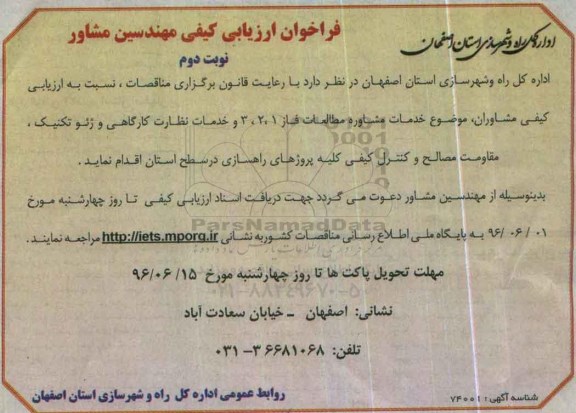 اداره کل راه و شهرسازی استان اصفهان
فراخوان ارزیابی کیفی مهندسین مشاور
نوبت دوم
اداره کل راه وشهرسازی استان اصفهان در نظر دارد با رعایت قانون برگزاری مناقصات ، نسبت به ارزیابی
کیفی مشاوران، موضوع خدمات مشاوره مطالعات فاز ۱ ،۲ ، ۳ و خدمات نظارت کارگاهی و ژئو تکنیک ،
مقاومت مصالح و کنترل کیفی کلیه پروژهای راهسازی درسطح استان اقدام نماید .
بدینوسیله از مهندسین مشاور دعوت می گردد جهت دریافت اسناد ارزیابی کیفی تا روز چهارشنبه مورخ
۰۱ / ۰۶ /۹۶ به پایگاه ملی اطلاع رسانی مناقصات کشوربه نشانی http://iets.mporg.ir مراجعه نمایند .
مهلت تحویل پاکت ها تا روز چهارشنبه مورخ ۱۵/ ۹۶/۰۶
نشانی: اصفهان – خیابان سعادت آباد
تلفن: ۳۶۶۸۱۰۶۸ –۰۳۱
روابط عمومی اداره کل راه و شهرسازی استان اصفهان
شناسه آگهی: ۷۴۰۰۱
ParsNamadData
۰۲۱-۸۸۳۴۹۶۷۰-۵